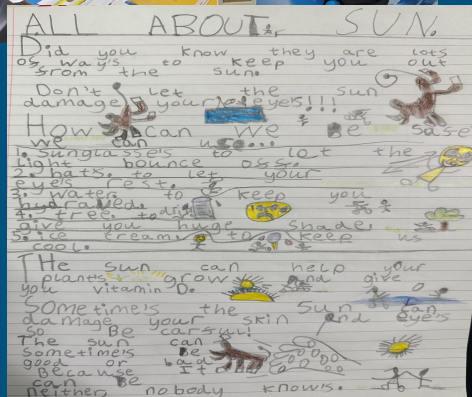 ALL ABOUT SUN.
Did you know they are lots
of way's to keep you out
from the sun.
Don't let the sun
damage your eye's!!!
How can we Be safe
we can use...
1. sunglasse's to lot the
light bounce off.
2. hats. to let your
eye's rest.
3. water. to keep you
hydrated.
4. tree. to
give you huge shade.
5. ice cream. to keep us
cool.
THe sun can help your
plants grow and give
you vitamin D.
SOmetime's the sun can
damage your skin and eye's
so Be carful!
The sun can
sometime's Be
good or bad
Because It
can Be
neither nobody know's.